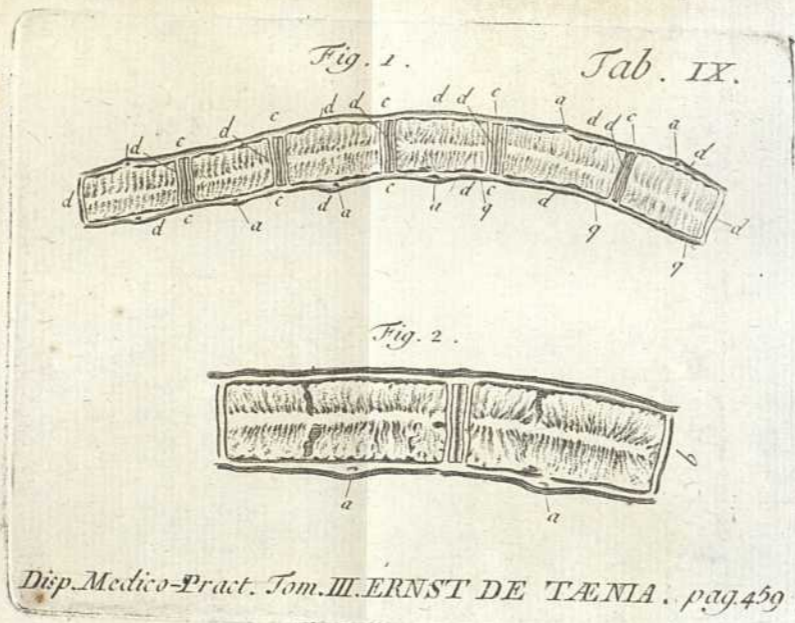 Fig. 1.
Tab. IX.
d d c d c d d c d d c a d d c a d
d d c a c d a c a d c q d q q d
Fig. 2.
q
a a
Disp. Medico-Pract. Tom. III. ERNST DE TÆNIA. pag. 459